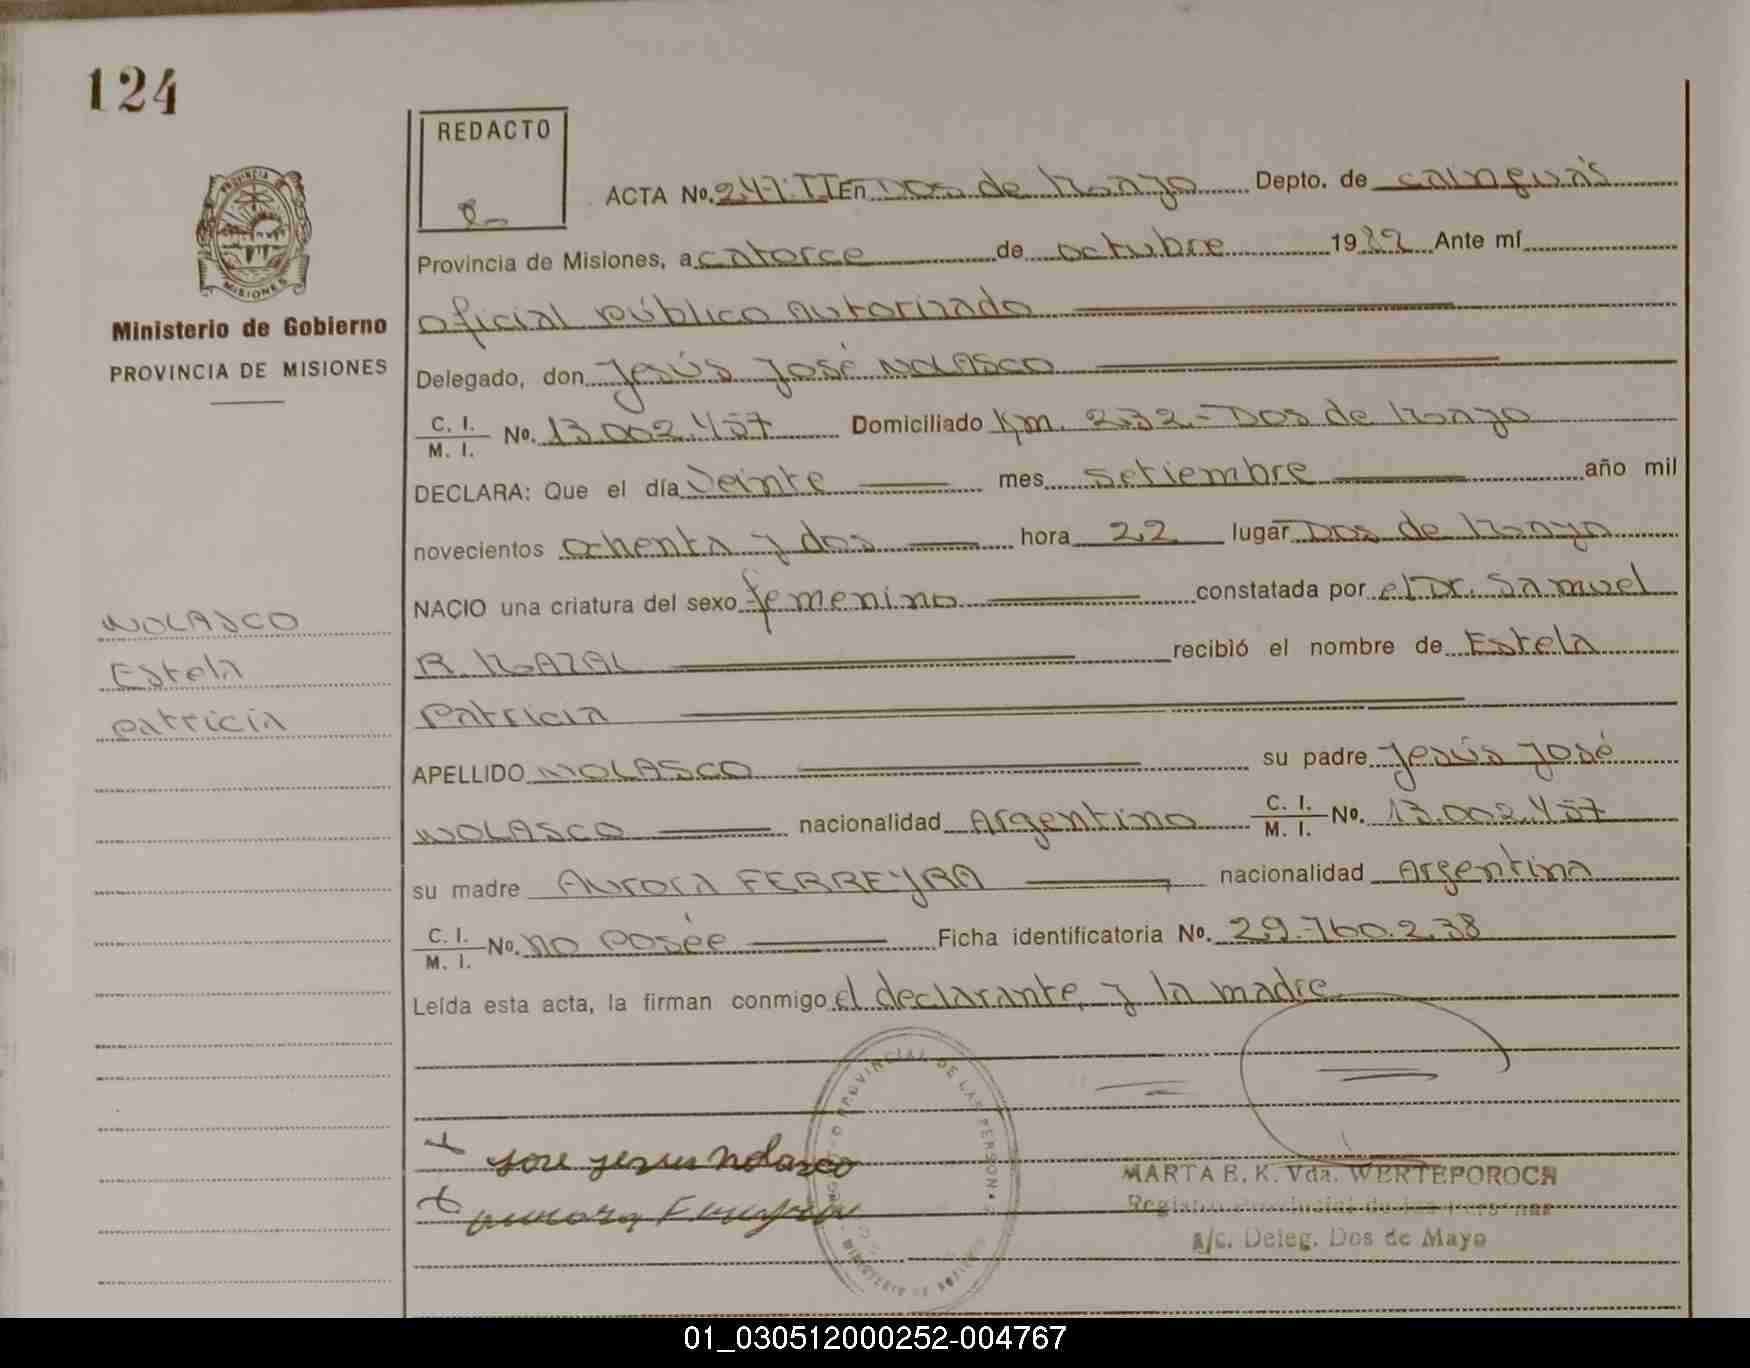 124
REDACTO
ACTA No. 247.II En Dos de Mayo Depto. de cainguás
Provincia de Misiones, a catorce de octubre 1982 Ante mí
oficial público autorizado
PROVINCIA
MISIONES
Ministerio de Gobierno
PROVINCIA DE MISIONES
Delegado, don Jesús José NOLASCO
C. I.
M. I. No. 13.002.457 Domiciliado Km. 232 - Dos de Mayo
DECLARA: Que el día veinte mes setiembre año mil
novecientos ochenta y dos hora 22 lugar Dos de Mayo
NACIO una criatura del sexo femenino constatada por el Dr. Samuel
R. MAZAL recibió el nombre de Estela
Patricia
NOLASCO
Estela
Patricia
APELLIDO NOLASCO su padre Jesús José
NOLASCO nacionalidad Argentino C. I.
M. I. No. 13.002.457
su madre Aurora FERREYRA nacionalidad Argentina
C. I.
M. I. No. no posée Ficha identificatoria No. 29.760.238
Leída esta acta, la firman conmigo el declarante y la madre
PROVINCIAL DE LAS PERSONAS
MINISTERIO DE GOBIERNO
Jose Jesus Nolasco
Aurora Ferreyra
MARTA B. K. Vda. WERTEPOROCH
Registro Provincial de las Personas
a/c. Deleg. Dos de Mayo
01_030512000252-004767